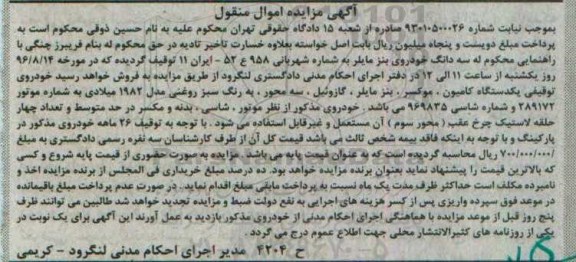 آگهی مزایده اموال منقول
بموجب نیابت شماره ۹۳۰۱۰۵۰۰۰۲۶ صادره از شعبه ۱۵ دادگاه حقوقی تهران محکوم علیه به نام حسین ذوقی محکوم است به
پرداخت مبلغ دویست و پنجاه میلیون ریال بابت اصل خواسته بعلاوه خسارت تاخیر تادیه در حق محکوم له بنام فریبرز چنگی با
راهنمایی محکوم له سه دانگ خودروی بنز مایلر به شماره شهربانی ۹۵۸ ع ۵۲ - ایران ۱۱ توقیف گردیده که در مورخه ۹۶/۸/۱۴
روز یکشنبه از ساعت ۱۱ الی ۱۲ در دفتر اجرای احکام مدنی دادگستری لنگرود از طریق مزایده به فروش خواهد رسید خودروی
توقیفی یکدستگاه کامیون ، موکسر ، بنز مایلر ، گازوئیل ، سه محور ، به رنگ سبز روغنی مدل ۱۹۸۲ میلادی به شماره موتور
۲۸۹۱۷۲ و شماره شاسی ۹۶۹۸۳۵ می باشد . خودروی مذکور از نظر موتور ، شاسی ، بدنه و مکسر در حد متوسط و تعداد چهار
حلقه لاستیک چرخ عقب ( محور سوم ) آن مستعمل و غیرقابل استفاده می شود . با توجه به توقیف ۲۶ ماهه خودروی مذکور در
پارکینگ و با توجه به اینکه فاقد بیمه شخص ثالث می باشد قیمت کل آن از طرف کارشناسان سه نفره رسمی دادگستری به مبلغ
۷۰۰/۰۰۰/۰۰۰ ریال محاسبه گردیده است که به عنوان قیمت پایه می باشد . مزایده به صورت حضوری از قیمت پایه شروع و کسی
که بالاترین قیمت را پیشنهاد نماید بعنوان برنده مزایده خواهد بود. ده درصد مبلغ خریداری فی المجلس از برنده مزایده اخذ و
نامبرده مکلف است حداکثر ظرف مدت یک ماه نسبت به پرداخت مابقی مبلغ اقدام نماید . در صورت عدم پرداخت مبلغ باقیمانده
در موعد فوق سپرده واریزی پس از کسر هزینه های اجرایی به نفع دولت ضبط و مزایده تجدید خواهد شد طالبین می توانند ظرف
پنج روز قبل از موعد مزایده با هماهنگی اجرای احکام مدنی از خودروی مذکور بازدید به عمل آورند این آگهی برای یک نوبت در
یکی از روزنامه های کثیرالانتشار محلی جهت اطلاع عموم درج می گردد .
ح ۴۲۰۴ مدیر اجرای احکام مدنی لنگرود - کریمی